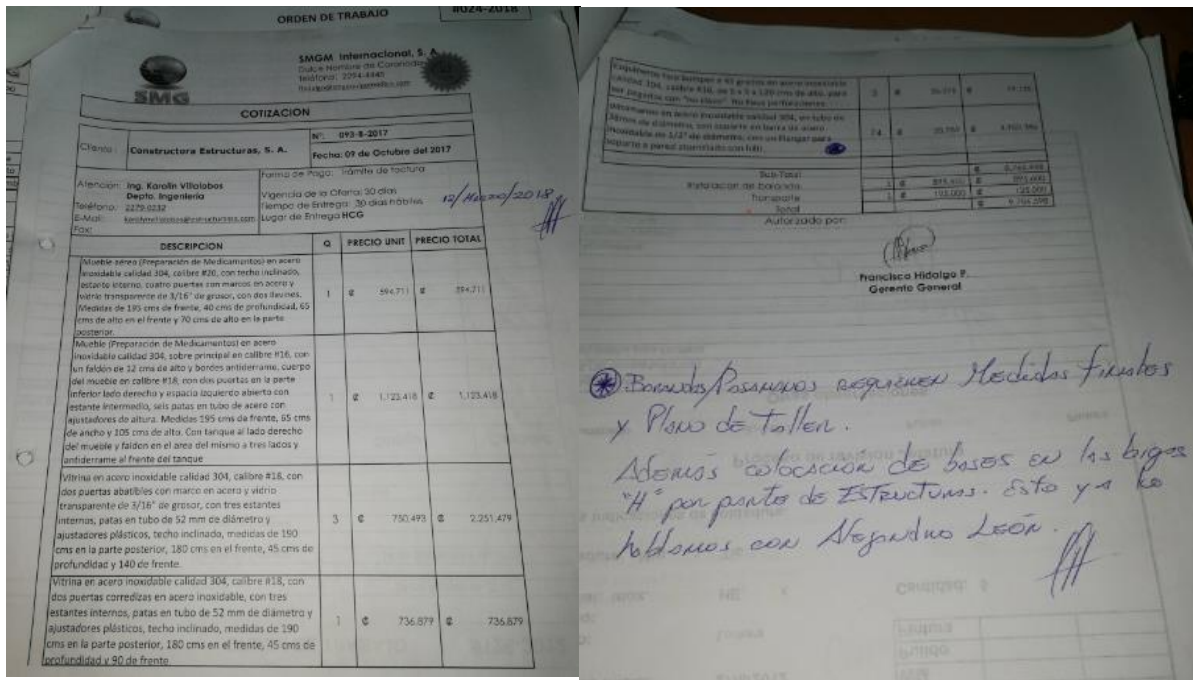 ORDEN DE TRABAJO
#024-2018
SMG
SMGM Internacional, S. A.
Dulce Nombre de Coronado
Teléfono: 2294-4945
COTIZACION
Cliente: Constructora Estructuras, S. A.
N°. 093-B-2017
Fecha: 09 de Octubre del 2017
Atención: Ing. Karolin Villalobos
Depto. Ingeniería
Teléfono: 2279-0232
E-Mail:
Fax:
Forma de Pago: Trámite de factura
Vigencia de la Oferta: 30 días
Tiempo de Entrega: 30 días hábiles
Lugar de Entrega HCG
12/Marzo/2018.
DESCRIPCION Q PRECIO UNIT PRECIO TOTAL
Mueble aéreo (Preparación de Medicamentos) en acero
inoxidable calidad 304, calibre #20, con techo inclinado,
estante interno, cuatro puertas con marcos en acero y
vidrio transparente de 3/16" de grosor, con dos llavines.
Medidas de 195 cms de frente, 40 cms de profundidad, 65
cms de alto en el frente y 70 cms de alto en la parte
posterior.
1 ₡ 594,711 ₡ 594,711
Mueble (Preparación de Medicamentos) en acero
inoxidable calidad 304, sobre principal en calibre #16, con
un faldón de 12 cms de alto y bordes antiderrame, cuerpo
del mueble en calibre #18, con dos puertas en la parte
inferior lado derecho y espacio izquierdo abierto con
estante intermedio, seis patas en tubo de acero con
ajustadores de altura. Medidas 195 cms de frente, 65 cms
de ancho y 105 cms de alto. Con tanque al lado derecho
del mueble y faldon en el area del mismo a tres lados y
antiderrame al frente del tanque
1 ₡ 1,123,418 ₡ 1,123,418
Vitrina en acero inoxidable calidad 304, calibre #18, con
dos puertas abatibles con marco en acero y vidrio
transparente de 3/16" de grosor, con tres estantes
internos, patas en tubo de 52 mm de diámetro y
ajustadores plásticos, techo inclinado, medidas de 190
cms en la parte posterior, 180 cms en el frente, 45 cms de
profundidad y 140 de frente.
3 ₡ 750,493 ₡ 2,251,479
Vitrina en acero inoxidable calidad 304, calibre #18, con
dos puertas corredizas en acero inoxidable, con tres
estantes internos, patas en tubo de 52 mm de diámetro y
ajustadores plásticos, techo inclinado, medidas de 190
cms en la parte posterior, 180 cms en el frente, 45 cms de
profundidad y 90 de frente.
1 ₡ 736,879 ₡ 736,879
Esquinero tipo bumper a 45 grados en acero inoxidable
calidad 304, calibre #16, de 5 x 5 x 120 cms de alto, para
ser pegados con "no clavo". No lleva perforaciones
2 ₡ ₡
Pasamanos en acero inoxidable calidad 304, en tubo de
38mm de diámetro, con soporte en barra de acero
inoxidable en 1/2" de diámetro, con un flanger para
soporte a pared atornillado con
74 ₡ ₡
Sub-Total ₡
Instalación de barandas 1 ₡ 895,000 ₡ 895,000
Transporte 1 ₡ 125,000 ₡ 125,000
Total ₡
Autorizado por:
Francisco Hidalgo P.
Gerente General
Barandas/Pasamanos requieren Medidas finales
y Plano de Taller.
Además colocación de bases en las bigas
"H" por parte de Estructuras. Esto ya lo
hablamos con Alejandro León.